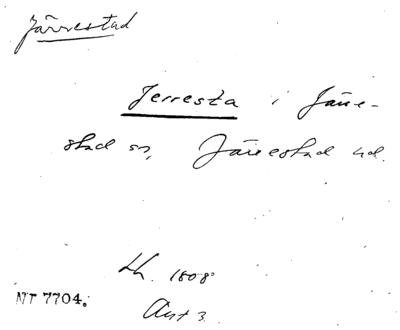 Järrestad
Jerresta i Järre-
stad sn, Järrestad hd.
Lh. 1808
NT 7704.
Avt 3